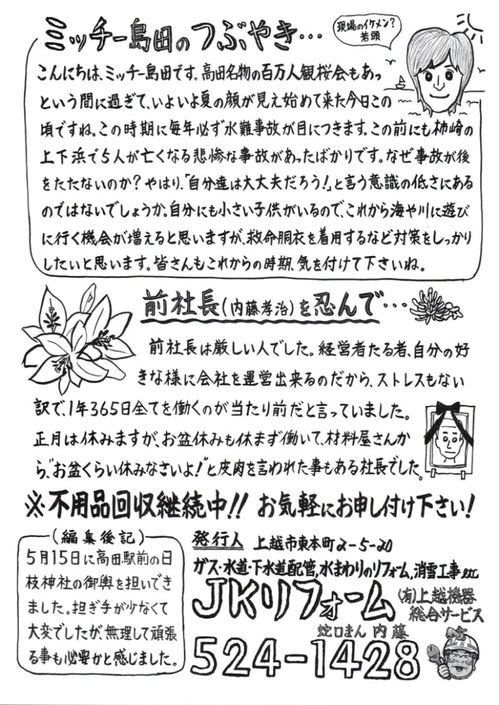 ミッチー島田のつぶやき…
現場のイケメン?
若頭
こんにちは、ミッチー島田です。高田名物の百万人観桜会もあっ
という間に過ぎて、いよいよ夏の顔が見え始めて来た今日この
頃ですね。この時期に毎年必ず水難事故が目につきます。この前にも柿崎の
上下浜で5人が亡くなる悲惨な事故があったばかりです。なぜ事故が後
をたたないのか?やはり、「自分達は大丈夫だろう!」と言う意識の低さにある
のではないでしょうか。自分にも小さい子供がいるので、これから海や川に遊び
に行く機会が増えると思いますが、救命胴衣を着用するなど対策をしっかり
したいと思います。皆さんもこれからの時期、気を付けて下さいね。
前社長(内藤孝治)を忍んで…
前社長は厳しい人でした。経営者たる者、自分の好
きな様に会社を運営出来るのだから、ストレスもない
訳で、1年365日全てを働くのが当たり前だと言っていました。
正月は休みますが、お盆休みも休まず働いて、材料屋さんか
ら、"お盆くらい休みなさいよ!"と皮肉を言われた事もある社長でした。
※不用品回収継続中!! お気軽にお申し付け下さい!
(編集後記)
5月15日に高田駅前の日
枝神社の御輿を担いでき
ました。担ぎ手が少なくて
大変でしたが、無理して頑張
る事も必要かと感じました。
発行人 上越市東本町2-5-20
ガス・水道・下水道配管,水まわりのリフォーム,消雪工事etc
JKリフォーム
(有)上越機器
総合サービス
蛇口まん 内藤
524-1428